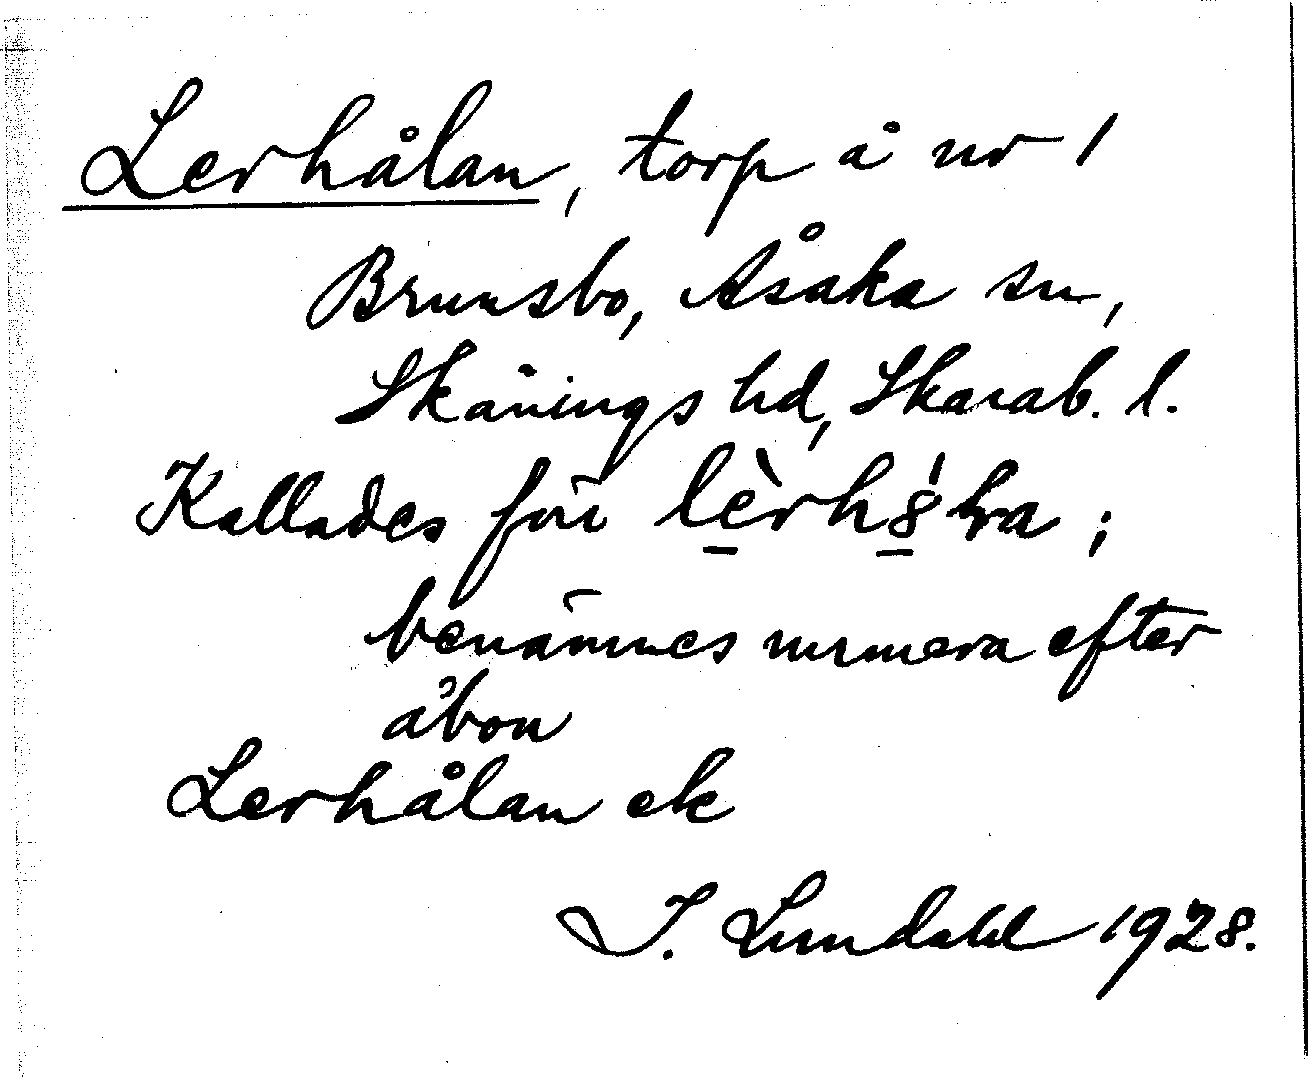 Lerhålan, torp å nr 1
Brunsbo, Åsaka sn,
Skånings hd, Skarab. l.
Kallades förr
benämnes numera efter
åbon
Lerhålan ek
I. Lundahl 1928.